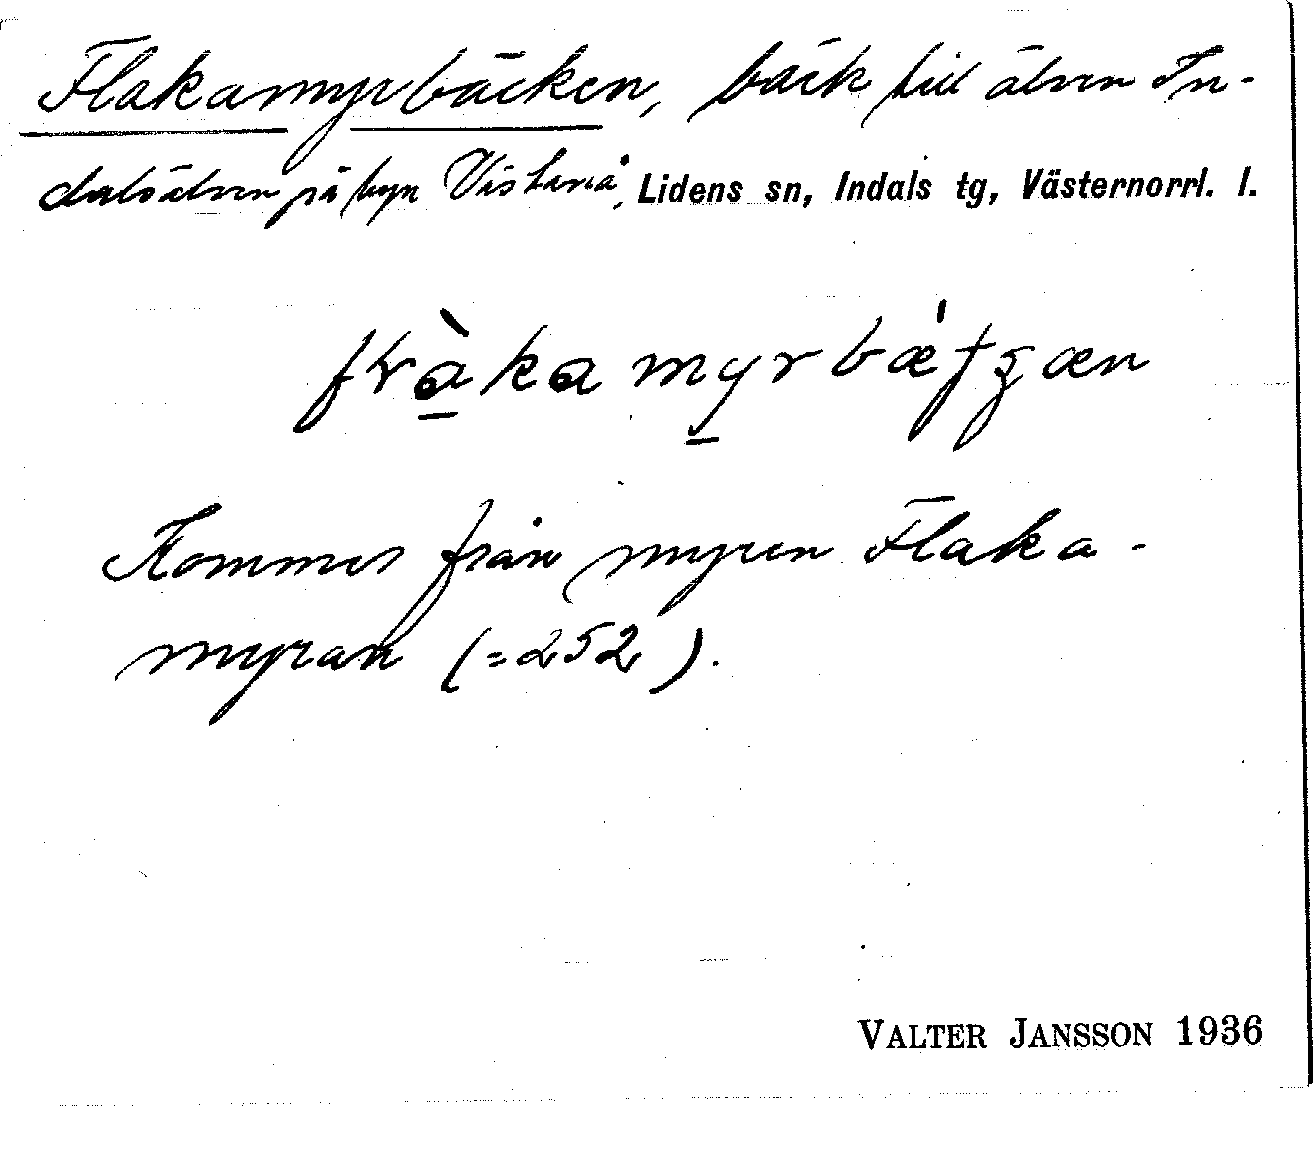 Flakamyrbäcken, bäck till älven In-
dalsälven på byn Västanå, Lidens sn, Indals tg, Västernorrl. l.
Kommer från myren Flaka-
myran (=252).
VALTER JANSSON 1936